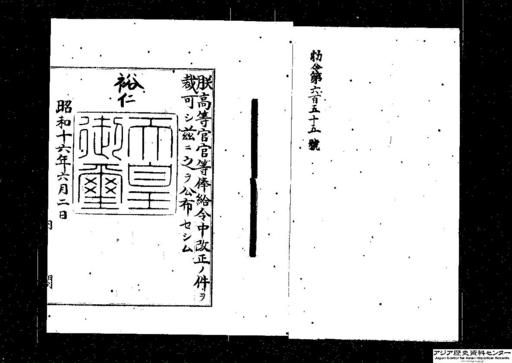 勅令第六百五十五號
朕高等官官等俸給令中改正ノ件ヲ
裁可シ茲ニ之ヲ公布セシム
裕仁
天皇
御璽
昭和十六年六月二日
内閣
アジア歴史資料センター
Japan Center for Asian Historical Records